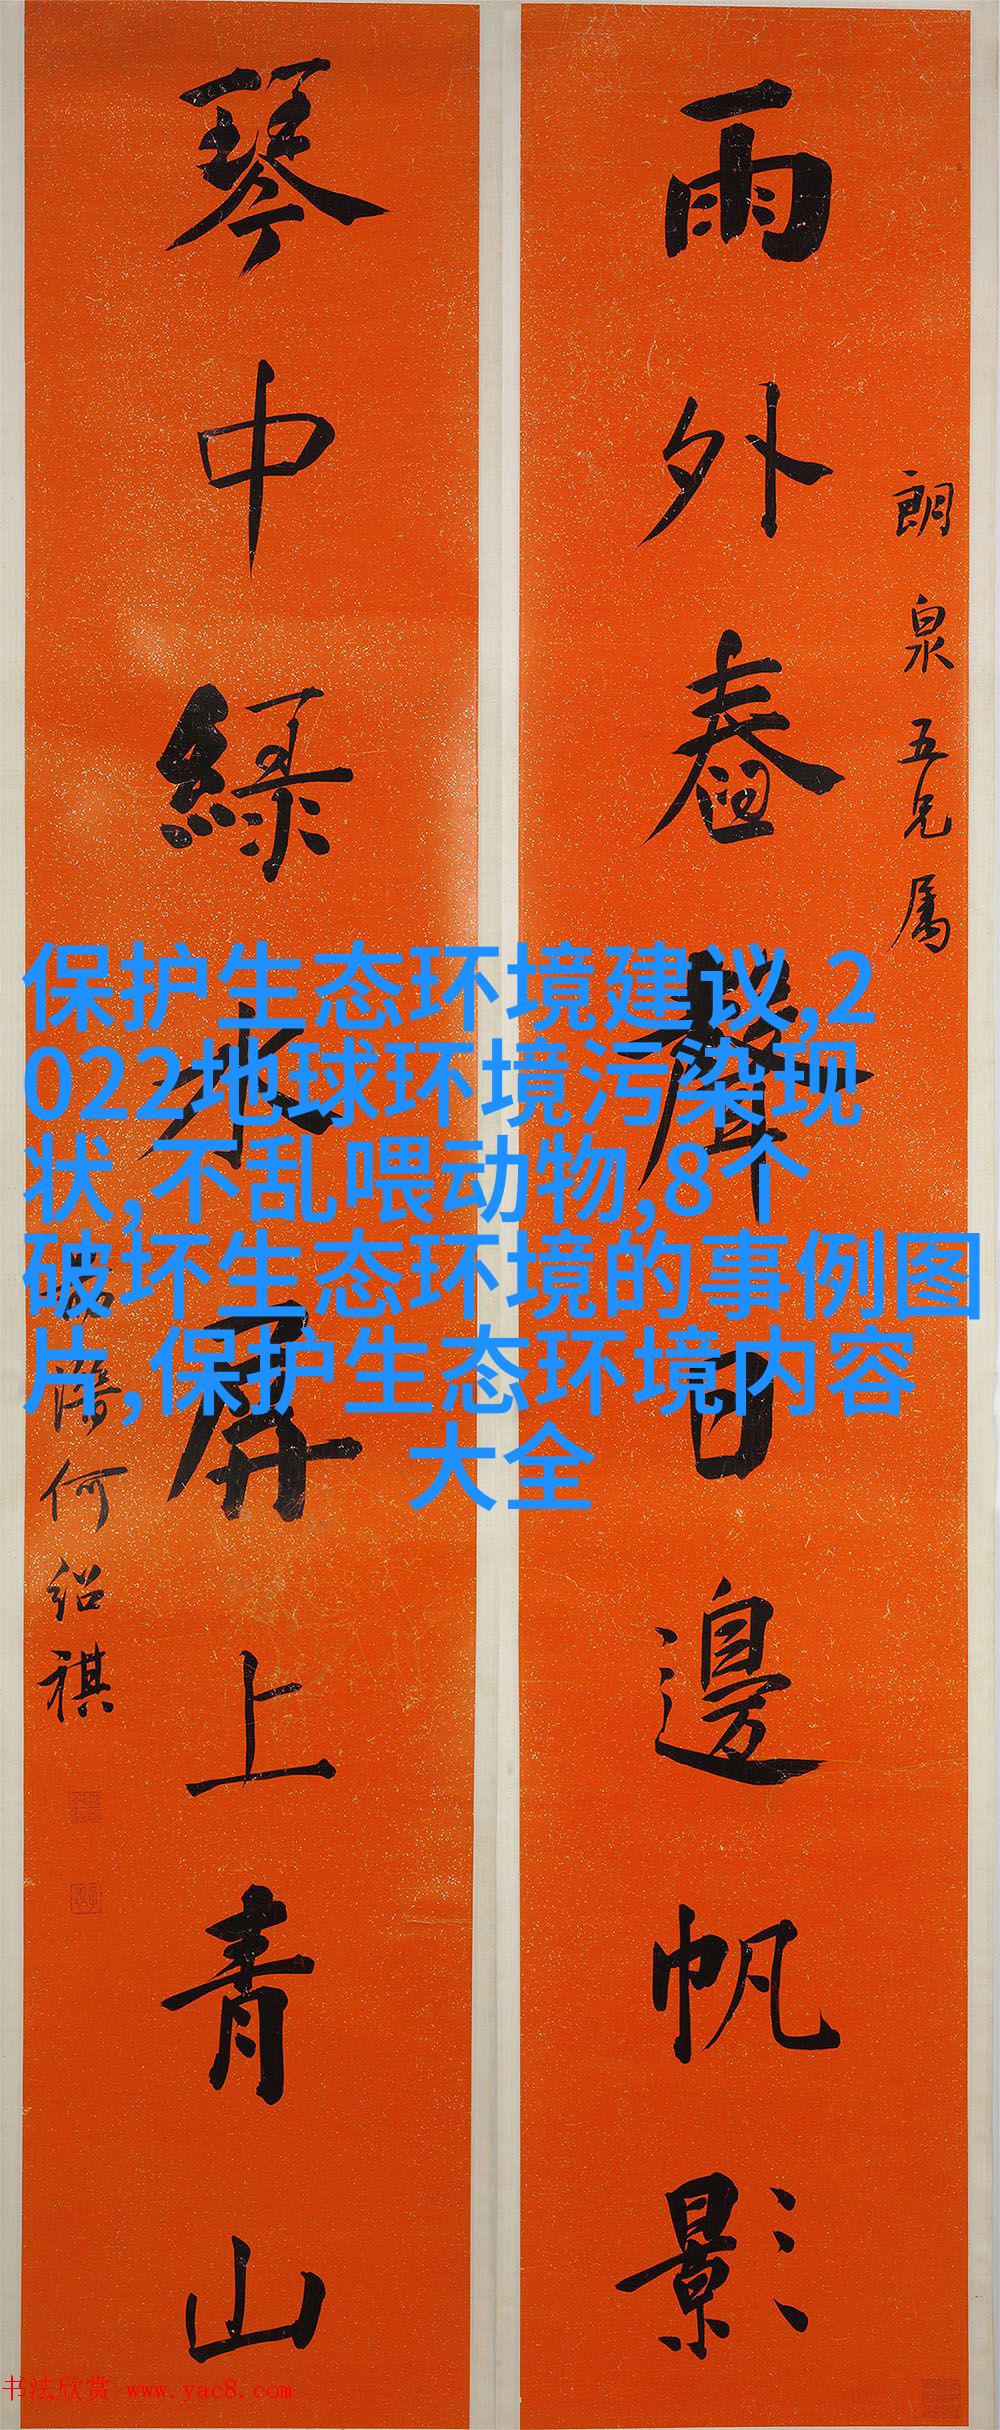 朗泉五兄属
雨外舂聲日邊帆影
琴中綠水屏上青山
何绍祺
保护生态环境建议,2
022地球环境污染现
状,不乱喂动物,8个
破坏生态环境的事例图
片,保护生态环境内容
大全
书法欣赏 www.yac8.com